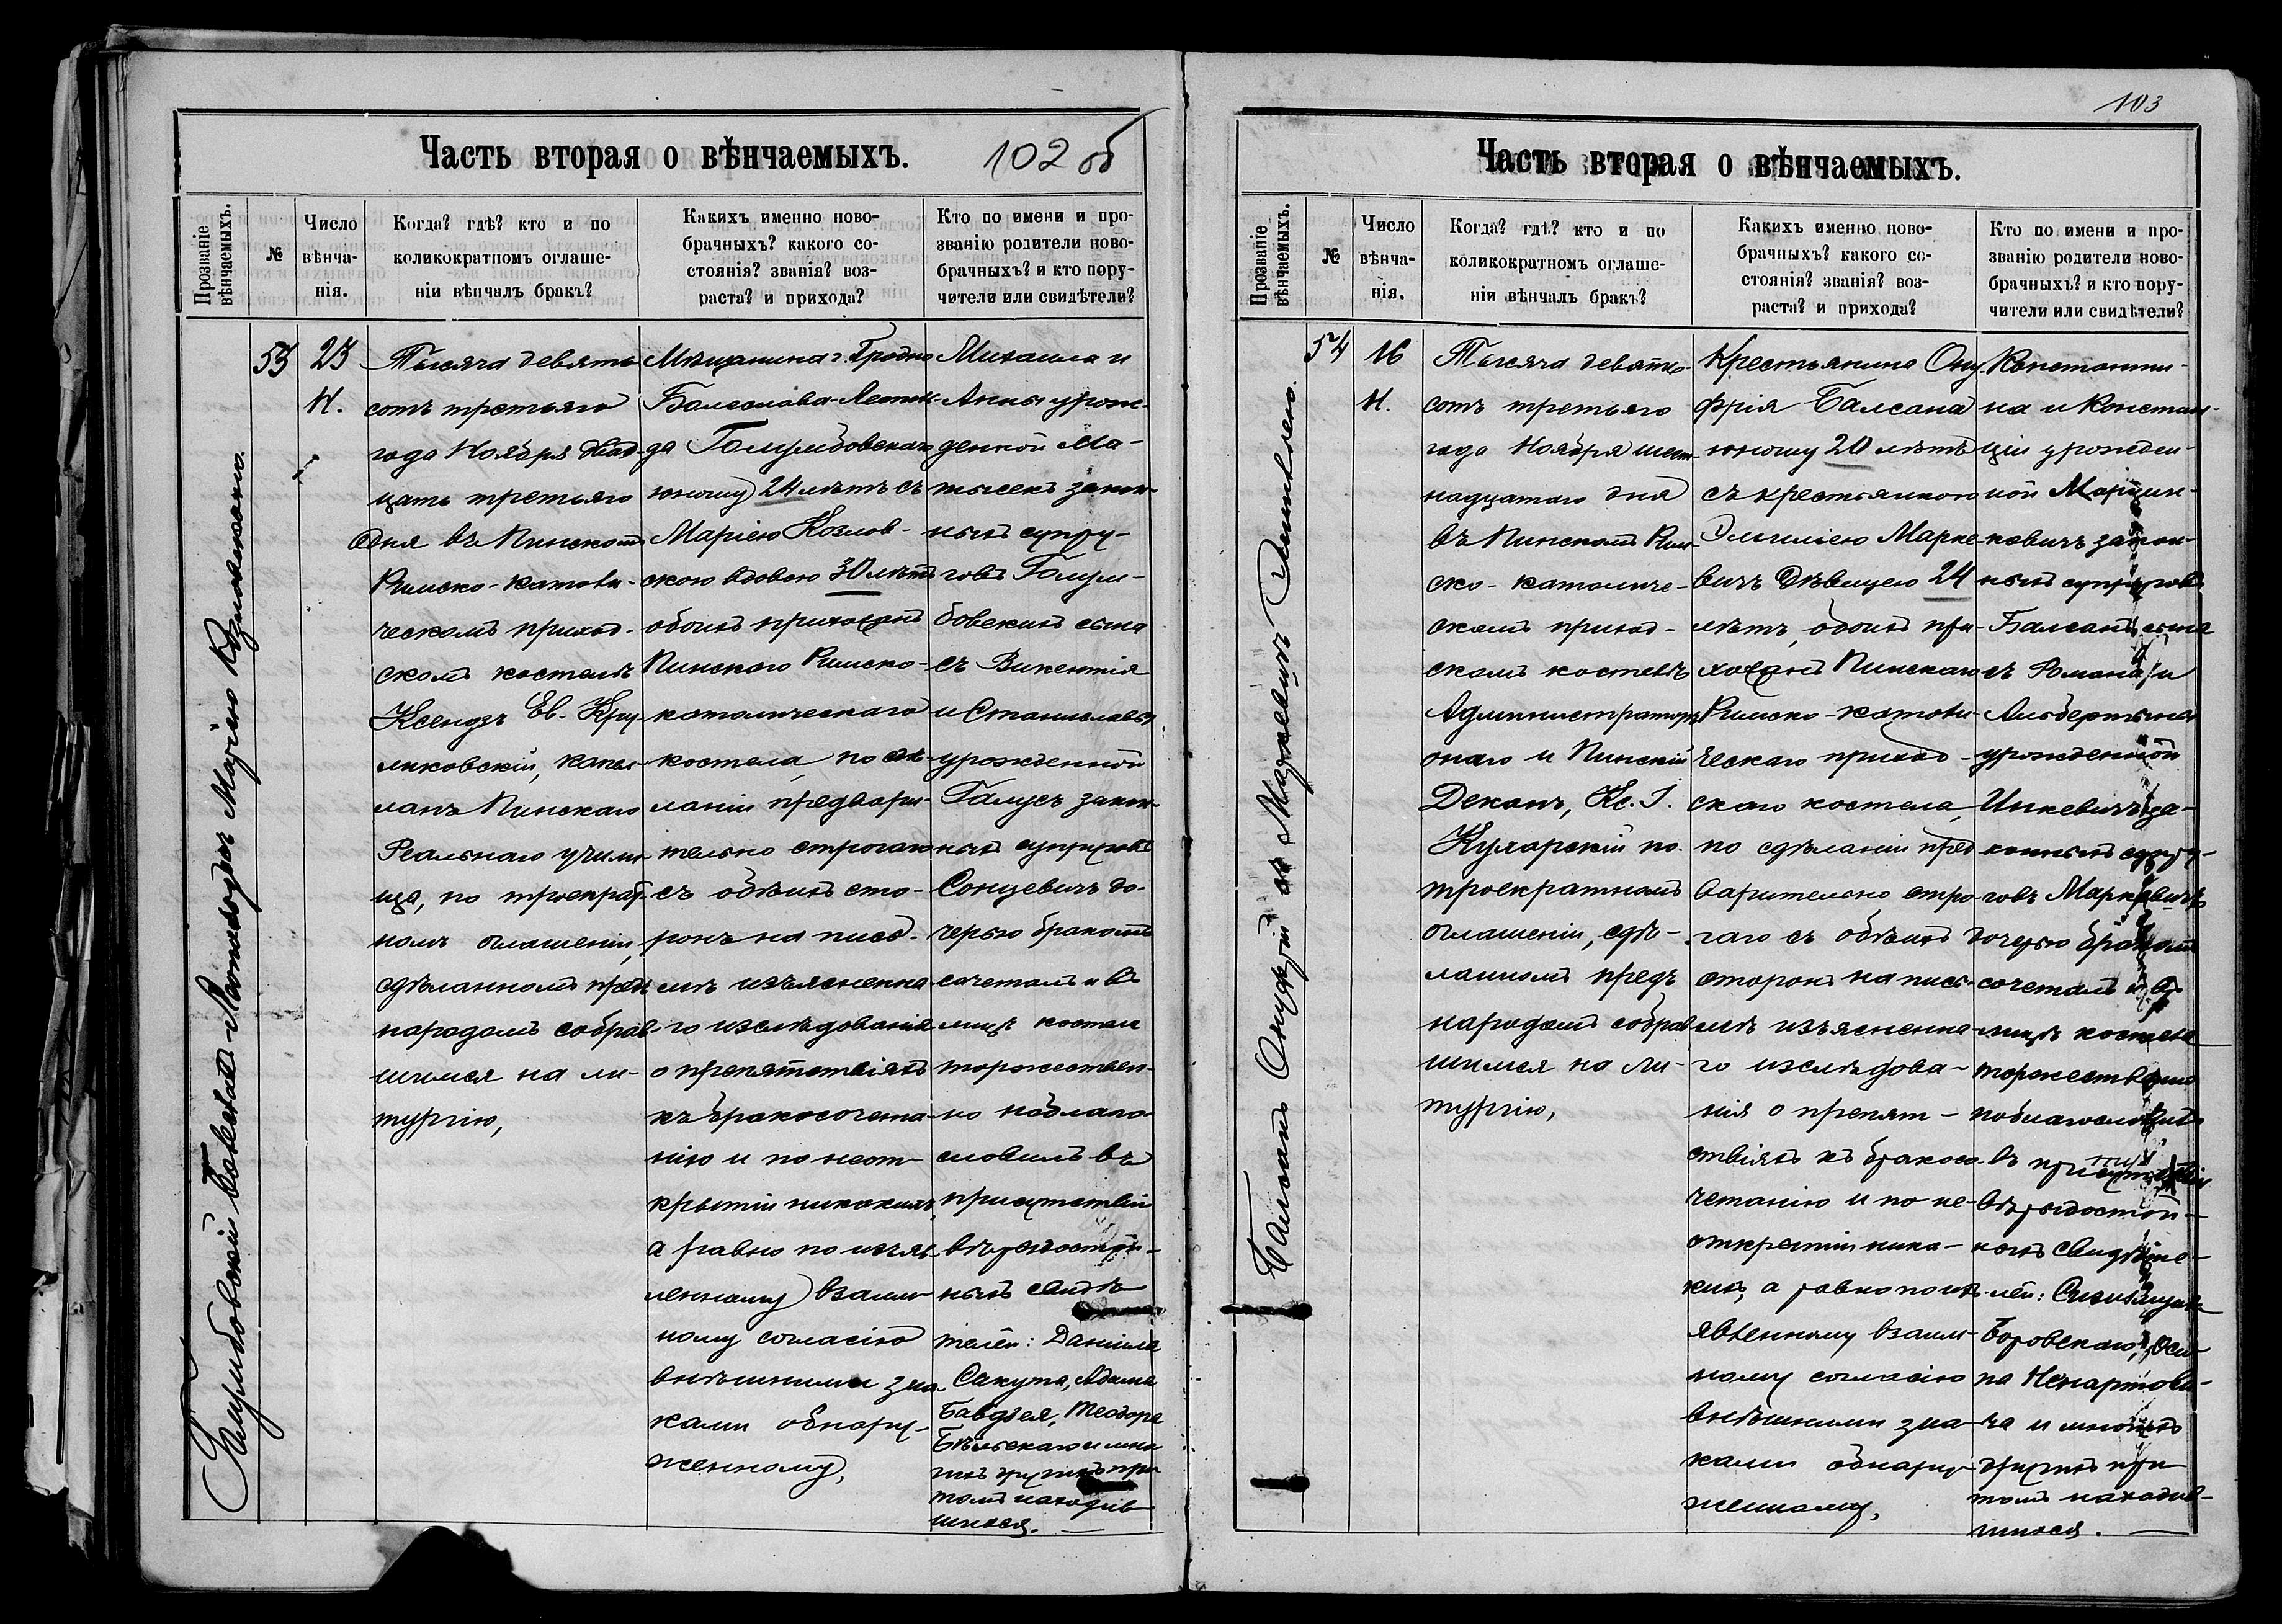 Часть вторая о вѣнчаемыхъ.
102 об
Прозваніе вѣнчаемыхъ.
№
Число вѣнча-
нія.
Когда? гдѣ? кто и по
коликократномъ оглаше-
ніи вѣнчалъ бракъ?
Какихъ именно ново-
брачныхъ? какого со-
стоянія? званія? воз-
раста? и прихода?
Кто по имени и про-
званію родители ново-
брачныхъ? и кто пору-
чители или свидѣтели?
53
23
Н.
Тысяча девять
сотъ третьяго
года Ноября двад-
цать третьяго
дня въ Пинскомъ
Римско-католи-
ческомъ приход-
скомъ костелѣ
Ксендзъ Ев. Кру-
ликовскій, капел-
ланъ Пинскаго
Реальнаго учили-
ща, по троекрат-
номъ оглашеніи,
сдѣланномъ предъ
народомъ собрав-
шимся на ли-
тургію,
Мѣщанина г. Гродно
Болеслава-Леони-
да Голумбовскаго
юношу 24 лѣтъ съ
Маріею Козлов-
скою вдовою 30 лѣтъ
обоихъ прихожанъ
Пинскаго Римско-
католическаго
костела, по сдѣ-
ланіи предвари-
тельно строгаго
съ обѣихъ сто-
ронъ на пись-
мѣ изъясненна-
го изслѣдованія
о препятствіяхъ
къ бракосочета-
нію и по неот-
крытіи никакихъ,
а равно по изъяв-
ленному взаим-
ному согласію
внѣшними зна-
ками обнару-
женному,
Михаила и
Анны урож-
денной Ма-
тысекъ закон-
ныхъ супру-
говъ Голум-
бовскихъ сына
съ Викентія
и Станиславы
урожденной
Галусъ закон-
ныхъ супруговъ
Сонцевичъ до-
черью бракомъ
сочеталъ и въ
лицѣ костела
торжествен-
но поблаго-
словилъ въ
присутствіи
вѣродостой-
ныхъ свидѣ-
телей: Даніила
Сакута, Адама
Бавдзея, Теодора
Бѣльскаго и мно-
гихъ другихъ при
томъ находив-
шихся.
103
Часть вторая о вѣнчаемыхъ.
Прозваніе вѣнчаемыхъ.
№
Число вѣнча-
нія.
Когда? гдѣ? кто и по
коликократномъ оглаше-
ніи вѣнчалъ бракъ?
Какихъ именно ново-
брачныхъ? какого со-
стоянія? званія? воз-
раста? и прихода?
Кто по имени и про-
званію родители ново-
брачныхъ? и кто пору-
чители или свидѣтели?
54
16
Н.
Тысяча девять-
сотъ третьяго
года Ноября шест-
надцатаго дня
въ Пинскомъ Рим-
ско-католиче-
скомъ приход-
скомъ костелѣ
Администраторъ
онаго и Пинскій
Деканъ, Кс. І.
Кухарскій по
троекратномъ
оглашеніи, сдѣ-
ланномъ предъ
народомъ собрав-
шимся на ли-
тургію,
Крестьянина Ону-
фрія Балсана
юношу 20 лѣтъ
съ крестьянкою
Эмиліею Марке-
вичъ дѣвицею 24
лѣтъ, обоихъ при-
хожанъ Пинскаго
Римско-католи-
ческаго приход-
скаго костела,
по сдѣланіи пред-
варительно стро-
гаго съ обѣихъ
сторонъ на пись-
мѣ изъясненна-
го изслѣдова-
нія о препят-
ствіяхъ къ бракосо-
четанію и по не-
открытіи ника-
кихъ, а равно по изъ-
явленному взаим-
ному согласію
внѣшними зна-
ками обнару-
женному,
Константи-
на и Констан-
ціи урожден-
ной Марцин-
кевичъ закон-
ныхъ супруговъ
Балсанъ сына
съ Романа и
Альбертины
урожденной
Инкевичъ за-
конныхъ супру-
говъ Маркевичъ
дочерью бракомъ
сочеталъ и въ
лицѣ костела
торжественно
поблагословилъ
въ присутствіи
вѣродостой-
ныхъ свидѣте-
лей: Сигизмунда
Боровскаго, Оси-
па Ненартови-
ча и многихъ
другихъ при
томъ находив-
шихся.